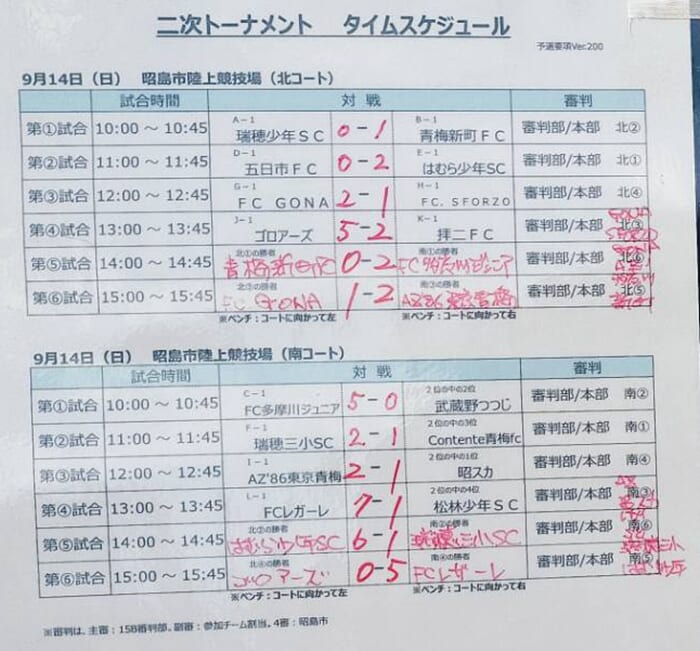 二次トーナメント タイムスケジュール
予選要項Ver.200
9月14日（日） 昭島市陸上競技場（北コート）
試合時間 対戦 審判
A-1 B-1
第①試合 10:00 ～ 10:45 瑞穂少年SC 0-1 青梅新町FC 審判部/本部 北②
D-1 E-1
第②試合 11:00 ～ 11:45 五日市FC 0-2 はむら少年SC 審判部/本部 北①
G-1 H-1
第③試合 12:00 ～ 12:45 FC GONA 2-1 FC. SFORZO 審判部/本部 北④
J-1 K-1 GONA
第④試合 13:00 ～ 13:45 ゴロアーズ 5-2 拝二FC 審判部/本部 北③ SFORZO
北①の勝者 南①の勝者
第⑤試合 14:00 ～ 14:45 青梅新町FC 0-2 FC多摩川ジュニア 審判部/本部 北⑥
北③の勝者 南③の勝者
第⑥試合 15:00 ～ 15:45 FC GONA 1-2 AZ'86東京青梅 審判部/本部 北⑤
※ベンチ：コートに向かって左 ※ベンチ：コートに向かって右
9月14日（日） 昭島市陸上競技場（南コート）
試合時間 対戦 審判
C-1 2位の中の2位
第①試合 10:00 ～ 10:45 FC多摩川ジュニア 5-0 武蔵野つつじ 審判部/本部 南②
F-1 2位の中の3位
第②試合 11:00 ～ 11:45 瑞穂三小SC 2-1 Contente青梅fc 審判部/本部 南①
I-1 2位の中の1位
第③試合 12:00 ～ 12:45 AZ'86東京青梅 2-1 昭スカ 審判部/本部 南④
L-1 2位の中の4位
第④試合 13:00 ～ 13:45 FCレガーレ 7-1 松林少年SC 審判部/本部 南③
北②の勝者 南②の勝者
第⑤試合 14:00 ～ 14:45 はむら少年SC 6-1 瑞穂三小SC 審判部/本部 南⑥
北④の勝者 南④の勝者
第⑥試合 15:00 ～ 15:45 ゴロアーズ 0-5 FCレガーレ 審判部/本部 南⑤
※ベンチ：コートに向かって左 ※ベンチ：コートに向かって右
※審判は、主審：15B審判部。副審：参加チーム割当。4審：昭島市